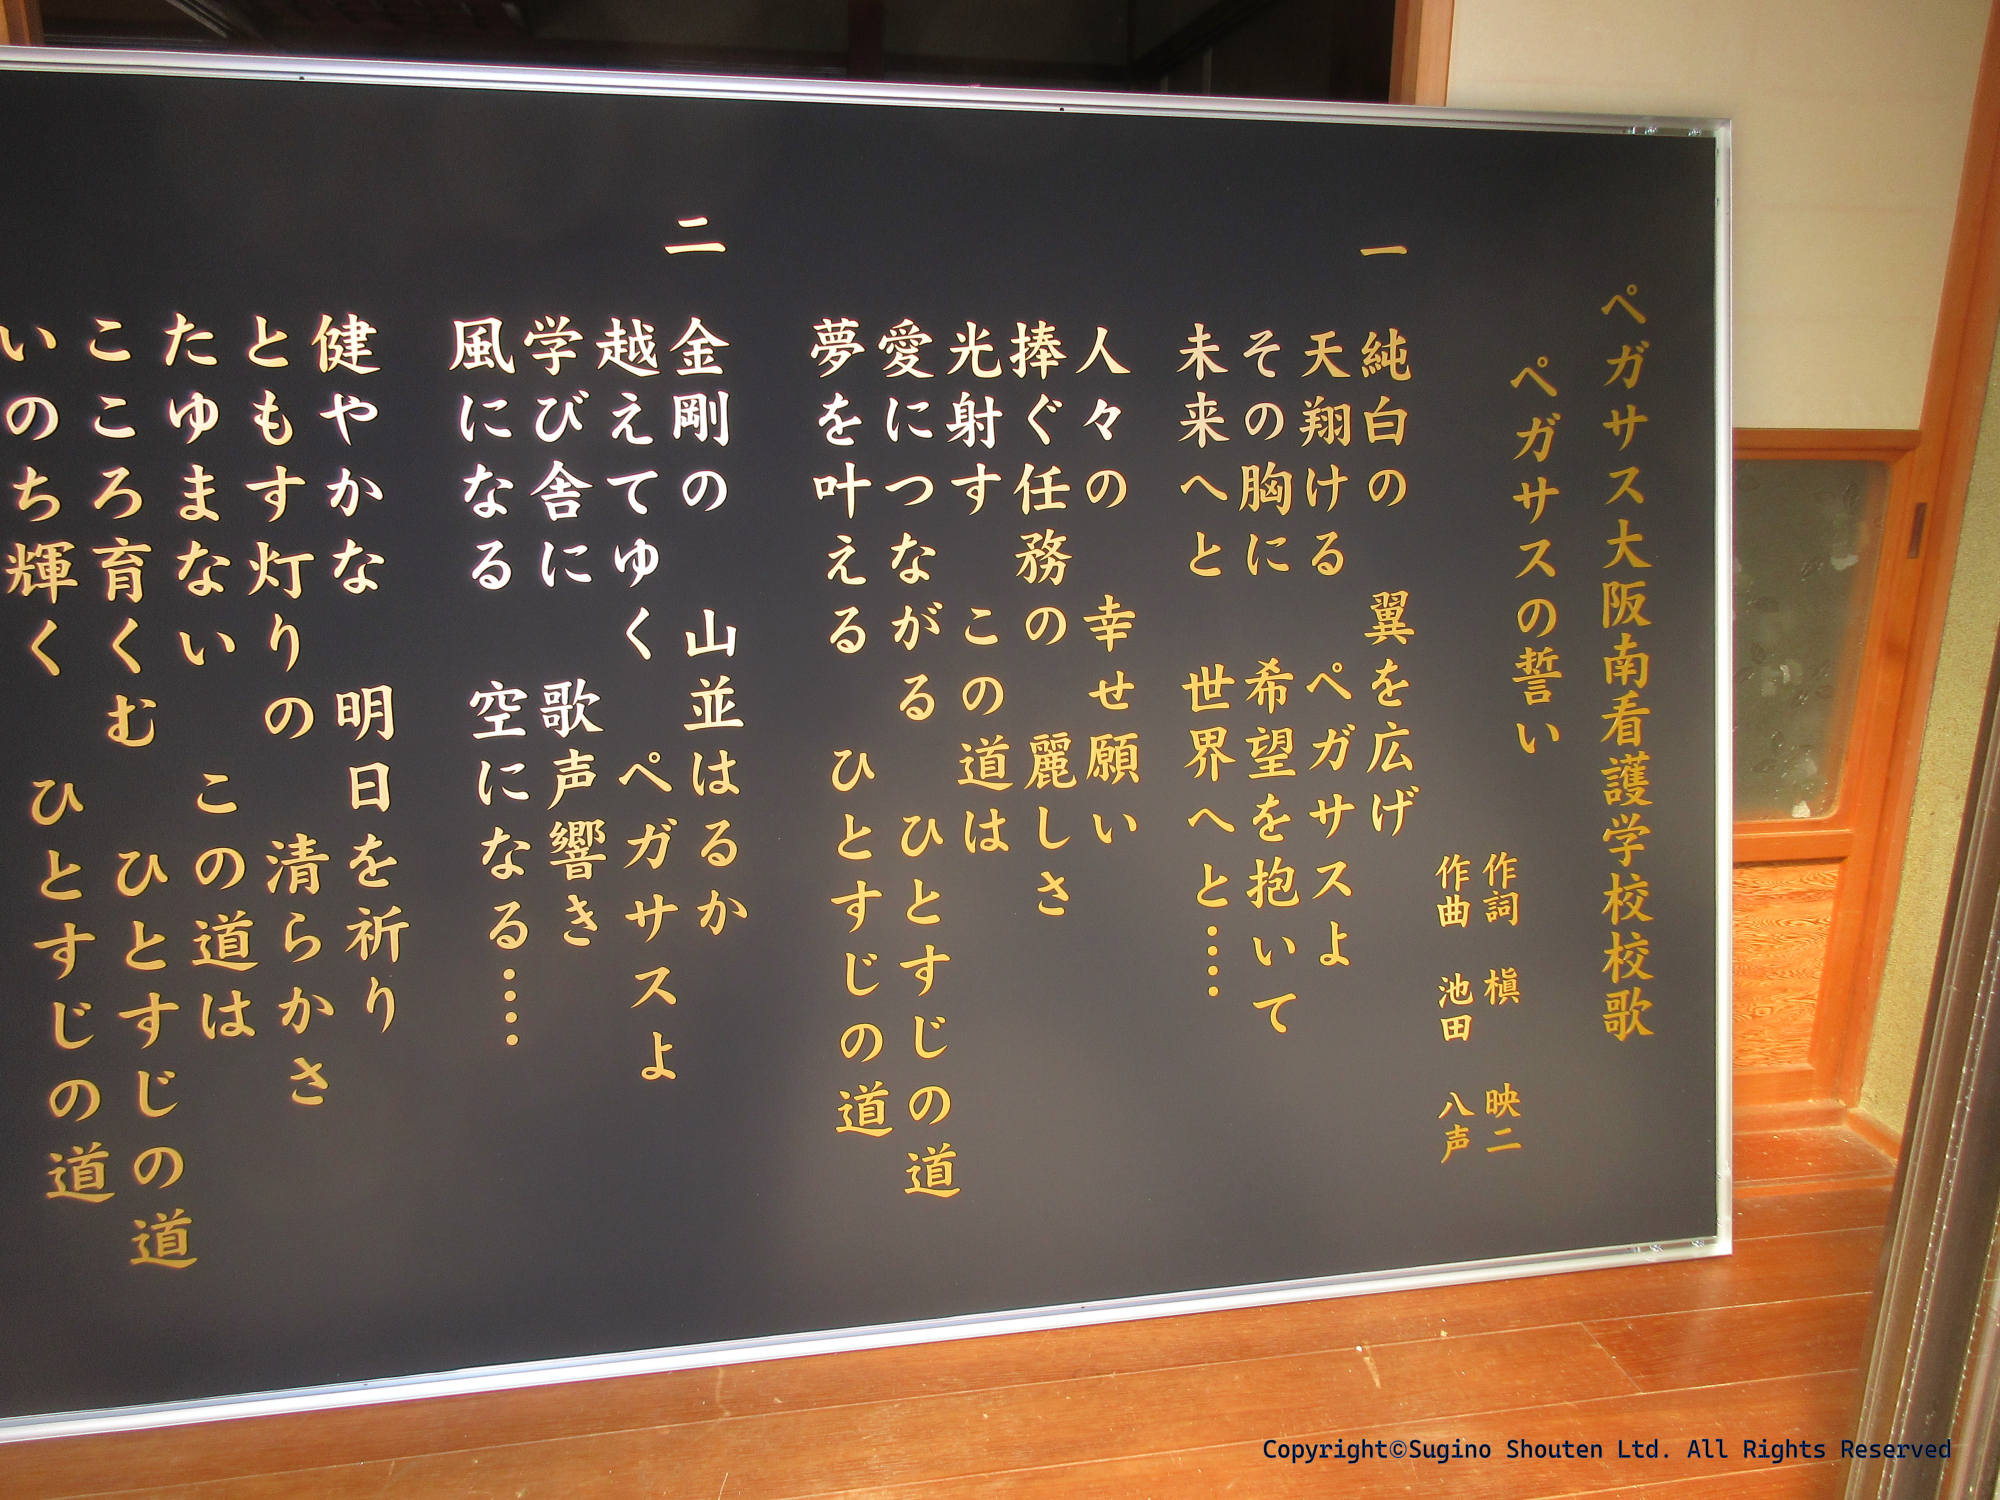 ペガサス大阪南看護学校校歌
ペガサスの誓い
作詞 槇 映二
作曲 池田 八声
一 純白の 翼を広げ
天翔ける ペガサスよ
その胸に 希望を抱いて
未来へと 世界へと‥‥
人々の 幸せ願い
捧ぐ任務の 麗しさ
光射す この道は
愛につながる ひとすじの道
夢を叶える ひとすじの道
二 金剛の 山並はるか
越えてゆく ペガサスよ
学び舎に 歌声響き
風になる 空になる‥‥
健やかな 明日を祈り
ともす灯りの 清らかさ
たゆまない この道は
こころ育くむ ひとすじの道
いのち輝く ひとすじの道
Copyright©Sugino Shouten Ltd. All Rights Reserved